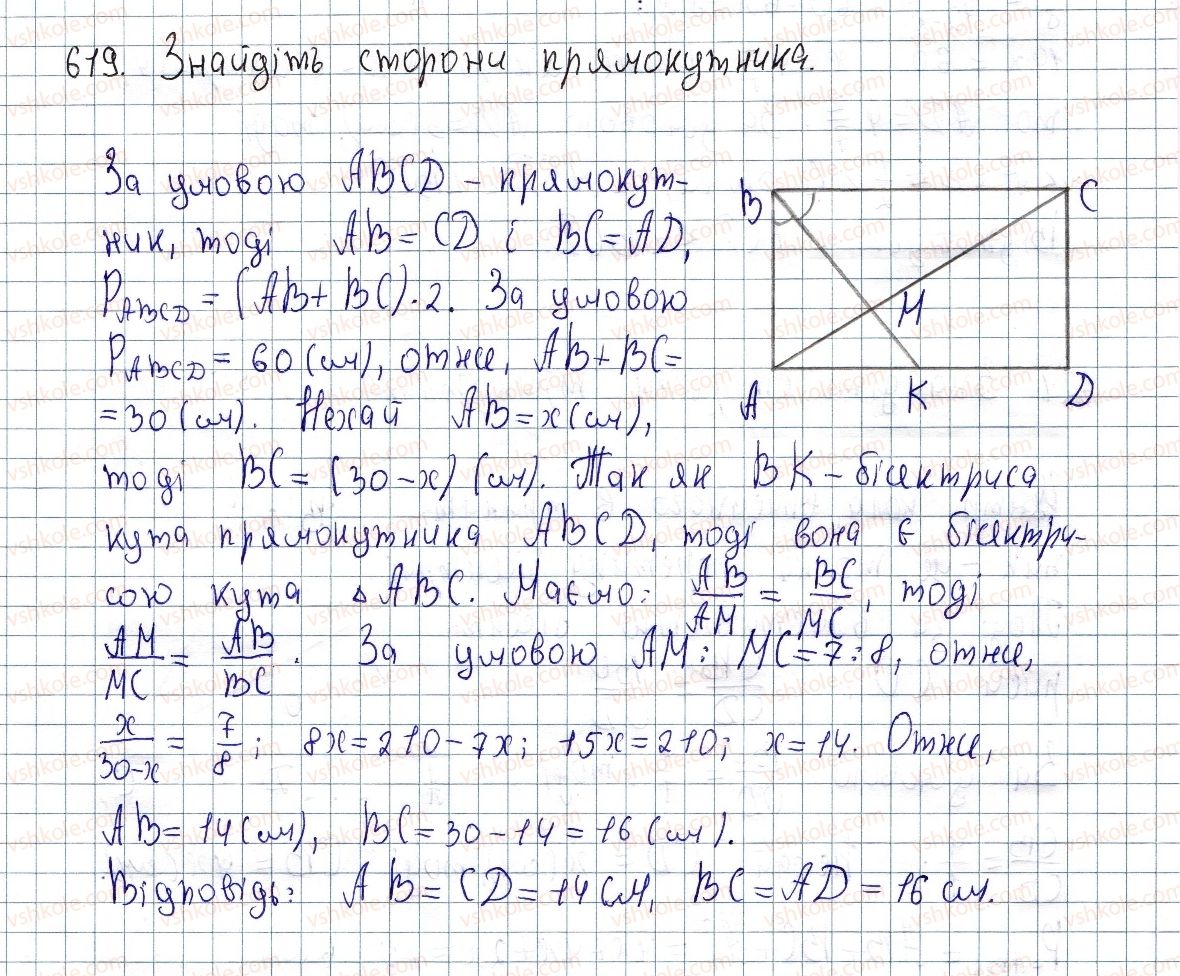 619. Знайдіть сторони прямокутника.
За умовою ABCD – прямокут-
ник, тоді AB = CD і BC = AD,
P_ABCD = (AB + BC) · 2. За умовою
P_ABCD = 60 (см), отже, AB + BC =
= 30 (см). Нехай AB = x (см),
тоді BC = (30 – x) (см). Так як BK – бісектриса
кута прямокутника ABCD, тоді вона є бісектри-
сою кута △ABC. Маємо: AB/AM = BC/MC, тоді
AM/MC = AB/BC. За умовою AM : MC = 7 : 8, отже,
x/(30–x) = 7/8; 8x = 210 – 7x; 15x = 210; x = 14. Отже,
AB = 14 (см), BC = 30 – 14 = 16 (см).
Відповідь: AB = CD = 14 см, BC = AD = 16 см.
B C
M
A K D
vshkole.com